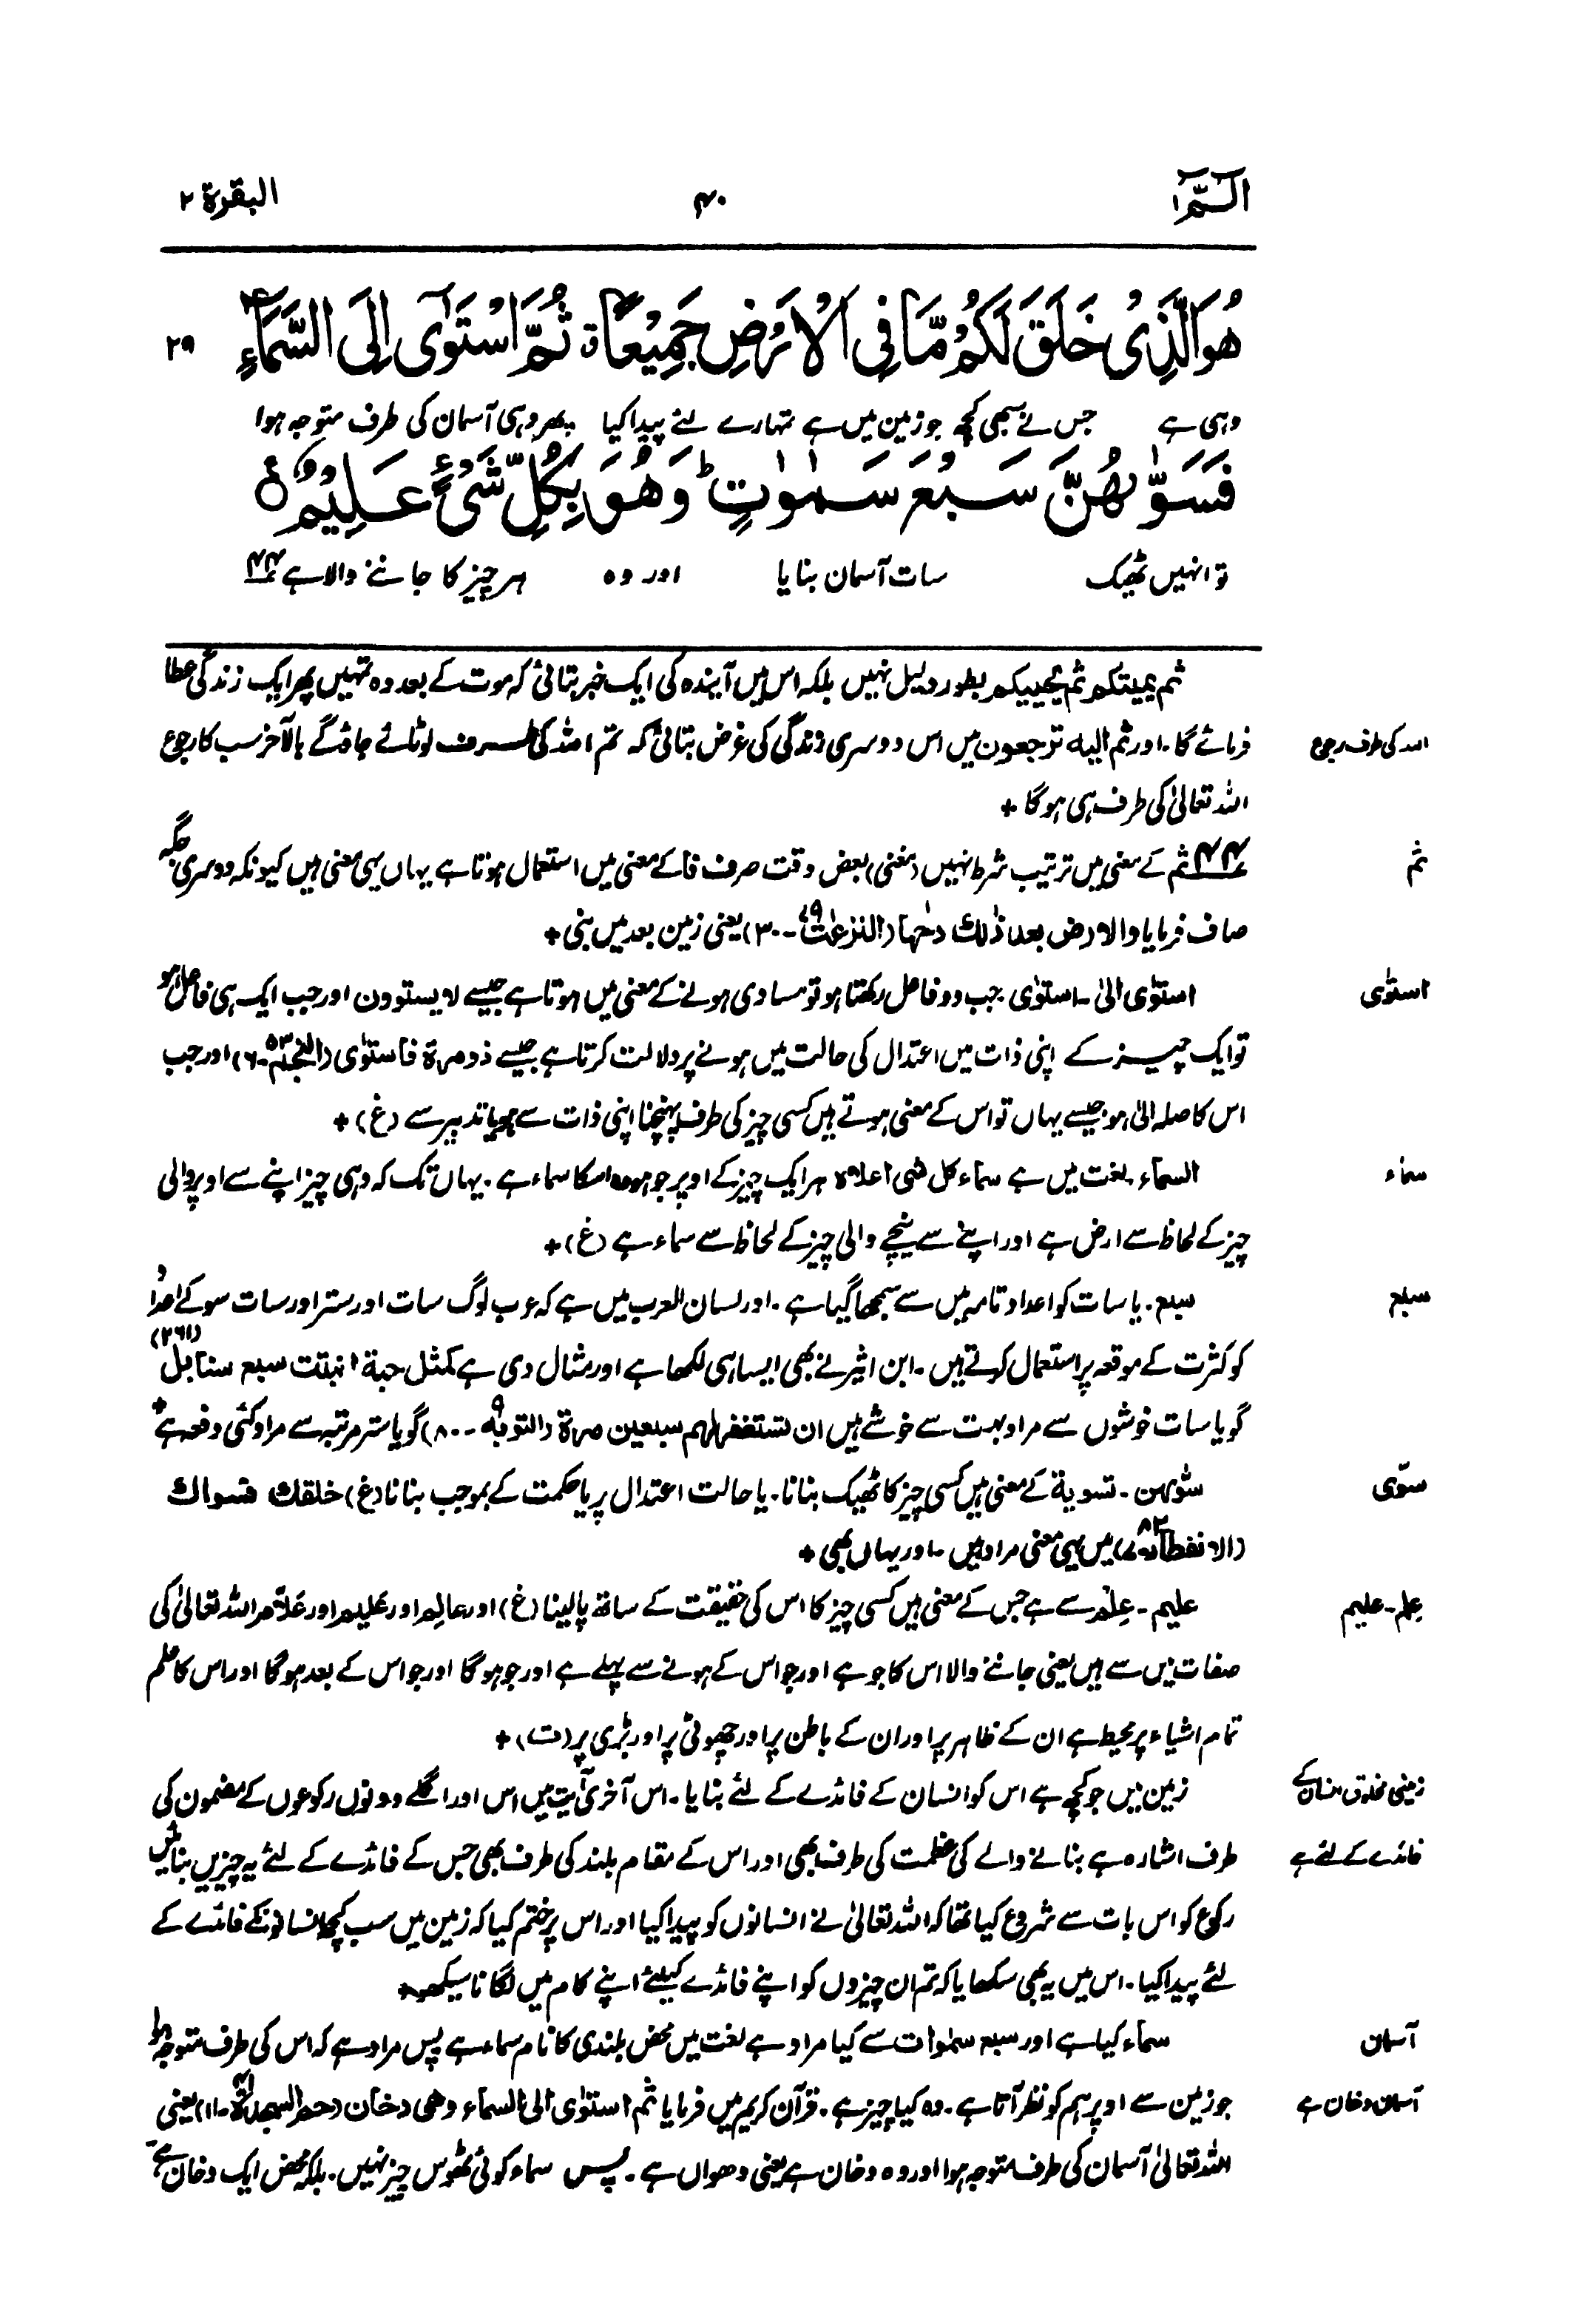 الٓمّٓ ۱
۴۰
البقرة ۲
هُوَ الَّذِىْ خَلَقَ لَكُمْ مَّا فِى الْاَرْضِ جَمِيْعًا ق ثُمَّ اسْتَوٰٓى اِلَى السَّمَآءِ ۲۹
وہی ہے جس نے سبھی کچھ جو زمین میں ہے تمہارے لئے پیدا کیا پھر وہی آسمان کی طرف متوجہ ہوا
فَسَوّٰىهُنَّ سَبْعَ سَمٰوٰتٍ ط وَهُوَ بِكُلِّ شَىْءٍ عَلِيْمٌ ع
تو انہیں ٹھیک سات آسمان بنایا اور وہ ہر چیز کا جاننے والا ہے ۴۴
ثم یمیتکم ثم یحییکم بطور دلیل نہیں بلکہ اس میں آیندہ کی ایک خبر بتائی کہ موت کے بعد وہ تمہیں پھر ایک زندگی عطا
اللہ کی طرف رجوع
فرمائے گا۔ اور ثم الیه ترجعون میں اس دوسری زندگی کی غرض بتائی کہ تم اللہ کی طرف لوٹائے جاؤ گے بالآخر سب کا رجوع
اللہ تعالیٰ کی طرف ہی ہوگا +
ثم
۴۴ ثم کے معنی میں ترتیب شرط نہیں (مغنی) بعض وقت صرف فا کے معنی میں استعمال ہوتا ہے یہاں یہی معنی ہیں کیونکہ دوسری جگہ
صاف فرمایا والارض بعد ذٰلك دحٰها (النزعٰت ۷۹-۳۰) یعنی زمین بعد میں بنی +
استوٰی
استوٰی الیٰ۔ استوٰی جب دو فاعل رکھتا ہو تو مساوی ہونے کے معنی میں ہوتا ہے جیسے لا یستوون اور جب ایک ہی فاعل ہو
تو ایک چیز کے اپنی ذات میں اعتدال کی حالت میں ہونے پر دلالت کرتا ہے جیسے ذو مرة فاستوٰی (النجم ۵۳-۶) اور جب
اس کا صلہ الیٰ ہو جیسے یہاں تو اس کے معنی ہوتے ہیں کسی چیز کی طرف پہنچنا اپنی ذات سے ہو یا تدبیر سے (غ) +
سماء
السماء۔ لغت میں ہے سماء کل شی اعلاہ ہر ایک چیز کے اوپر جو ہو وہ اسکا سماء ہے۔ یہاں تک کہ وہی چیز اپنے سے اوپر والی
چیز کے لحاظ سے ارض ہے اور اپنے سے نیچے والی چیز کے لحاظ سے سماء ہے (غ) +
سبع
سبع۔ یا سات کو اعداد تامہ میں سے سمجھا گیا ہے۔ اور لسان العرب میں ہے کہ عرب لوگ سات اور ستر اور سات سو کے اعداد
کو کثرت کے موقعہ پر استعمال کرتے ہیں۔ ابن اثیر نے بھی ایسا ہی لکھا ہے اور مثال دی ہے کمثل حبة انبتت سبع سنابل (۲۶۱)
گویا سات خوشوں سے مراد بہت سے خوشے ہیں ان تستغفر لهم سبعین مرة (التوبة ۹-۸۰) گویا ستر مرتبہ سے مراد کئی دفعہ ہے +
سوّی
سوّٰىهن۔ تسویة کے معنی ہیں کسی چیز کا ٹھیک بنانا۔ یا حالت اعتدال پر یا حکمت کے بموجب بنانا (غ) خلقك فسواك
(الانفطار ۸۲-۷) میں یہی معنی مراد ہیں۔ اور یہاں بھی +
علم۔ علیم
علیم۔ عِلْم سے ہے جس کے معنی ہیں کسی چیز کا اس کی حقیقت کے ساتھ پالینا (غ) اور عالِم اور علیم اور علّام اللہ تعالیٰ کی
صفات میں سے ہیں یعنی جاننے والا اس کا جو ہے اور جو اس کے ہونے سے پہلے ہے اور جو ہوگا اور جو اس کے بعد ہوگا اور اس کا علم
تمام اشیاء پر محیط ہے ان کے ظاہر پر اور ان کے باطن پر اور چھوٹی پر اور بڑی پر (ت) +
زمینی مخلوق انسان کے
زمین میں جو کچھ ہے اس کو انسان کے فائدے کے لئے بنایا۔ اس آخری آیت میں اس اور اگلے دونوں رکوعوں کے مضمون کی
فائدے کے لئے ہے
طرف اشارہ ہے بنانے والے کی عظمت کی طرف بھی اور اس کے مقام بلند کی طرف بھی جس کے فائدے کے لئے یہ چیزیں بنائیں
رکوع کو اس بات سے شروع کیا تھا کہ اللہ تعالیٰ نے انسانوں کو پیدا کیا اور اس پر ختم کیا کہ زمین میں سب کچھ انسانونکے فائدے کے
لئے پیدا کیا۔ اس میں یہ بھی سکھایا کہ تم ان چیزوں کو اپنے فائدے کیلئے اپنے کام میں لگانا سیکھو +
آسمان
سماء کیا ہے اور سبع سموات سے کیا مراد ہے لغت میں محض بلندی کا نام سماء ہے پس مراد ہے کہ اس کی طرف متوجہ ہوا
آسمان دخان ہے
جو زمین سے اوپر ہم کو نظر آتا ہے۔ وہ کیا چیز ہے۔ قرآن کریم میں فرمایا ثم استوٰی الی السماء وهی دخان (حم السجدة ۴۱-۱۱) یعنی
اللہ تعالیٰ آسمان کی طرف متوجہ ہوا اور وہ دخان ہے یعنی دھواں ہے۔ پس سماء کوئی ٹھوس چیز نہیں۔ بلکہ محض ایک دخان ہے